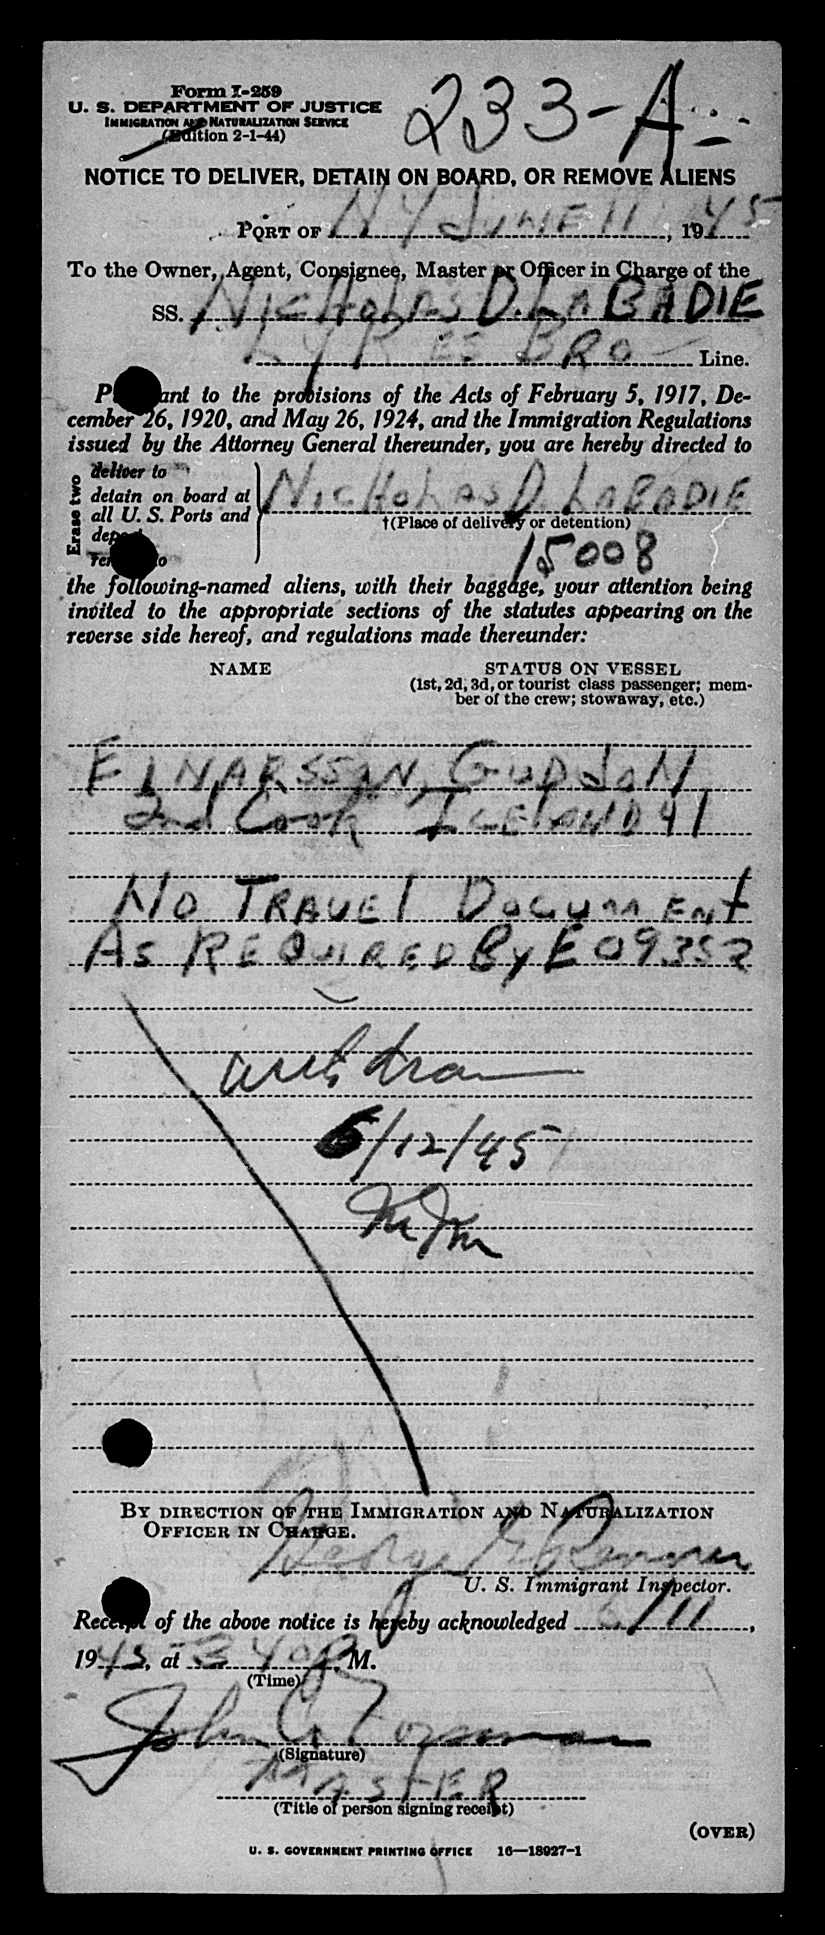 Form I-259
U. S. DEPARTMENT OF JUSTICE
IMMIGRATION AND NATURALIZATION SERVICE
(Edition 2-1-44)
233-A
NOTICE TO DELIVER, DETAIN ON BOARD, OR REMOVE ALIENS
PORT OF N Y JUNE 11, 1945
To the Owner, Agent, Consignee, Master or Officer in Charge of the
SS. NICHOLAS D. LABADIE
LYKES BRO Line.
Pursuant to the provisions of the Acts of February 5, 1917, De-
cember 26, 1920, and May 26, 1924, and the Immigration Regulations
issued by the Attorney General thereunder, you are hereby directed to
Erase two
deliver to
detain on board at
all U. S. Ports and
deport
remove to
NICHOLAS D. LABADIE
†(Place of delivery or detention)
15008
the following-named aliens, with their baggage, your attention being
invited to the appropriate sections of the statutes appearing on the
reverse side hereof, and regulations made thereunder:
NAME
STATUS ON VESSEL
(1st, 2d, 3d, or tourist class passenger; mem-
ber of the crew; stowaway, etc.)
EINARSSON, GUDJON,
2nd Cook ICELAND 41
NO TRAVEL DOCUMENT
AS REQUIRED By EO 9352
withdrawn
6/12/45
BY DIRECTION OF THE IMMIGRATION AND NATURALIZATION
OFFICER IN CHARGE.
George
U. S. Immigrant Inspector.
Receipt of the above notice is hereby acknowledged 6/11,
1945, at 340 P. M.
(Time)
John G.
(Signature)
MASTER
(Title of person signing receipt)
(OVER)
U. S. GOVERNMENT PRINTING OFFICE 16—18927-1